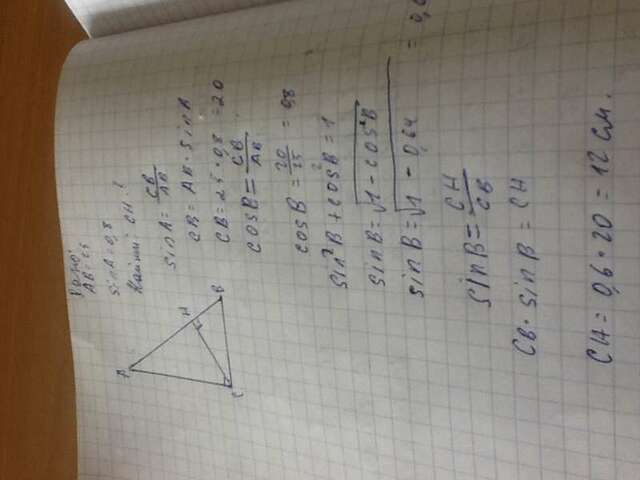 Дано:
AB=25
sinA=0,8
Найти: CH?
sinA=CB/AB
CB=AB·sinA
CB=25·0,8=20
cosB=CB/AB
cosB=20/25=0,8
sin²B+cos²B=1
sinB=√1-cos²B
sinB=√1-0,64=0,6
sinB=CH/CB
CB·sinB=CH
CH=0,6·20=12 см.
A
H
B
C